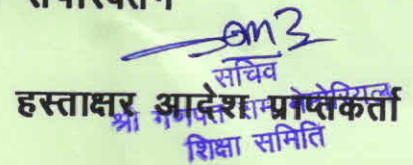 सचिव
हस्ताक्षर आदेश प्राप्तकर्ता
श्री गणपत राम मेमोरियल
शिक्षा समिति